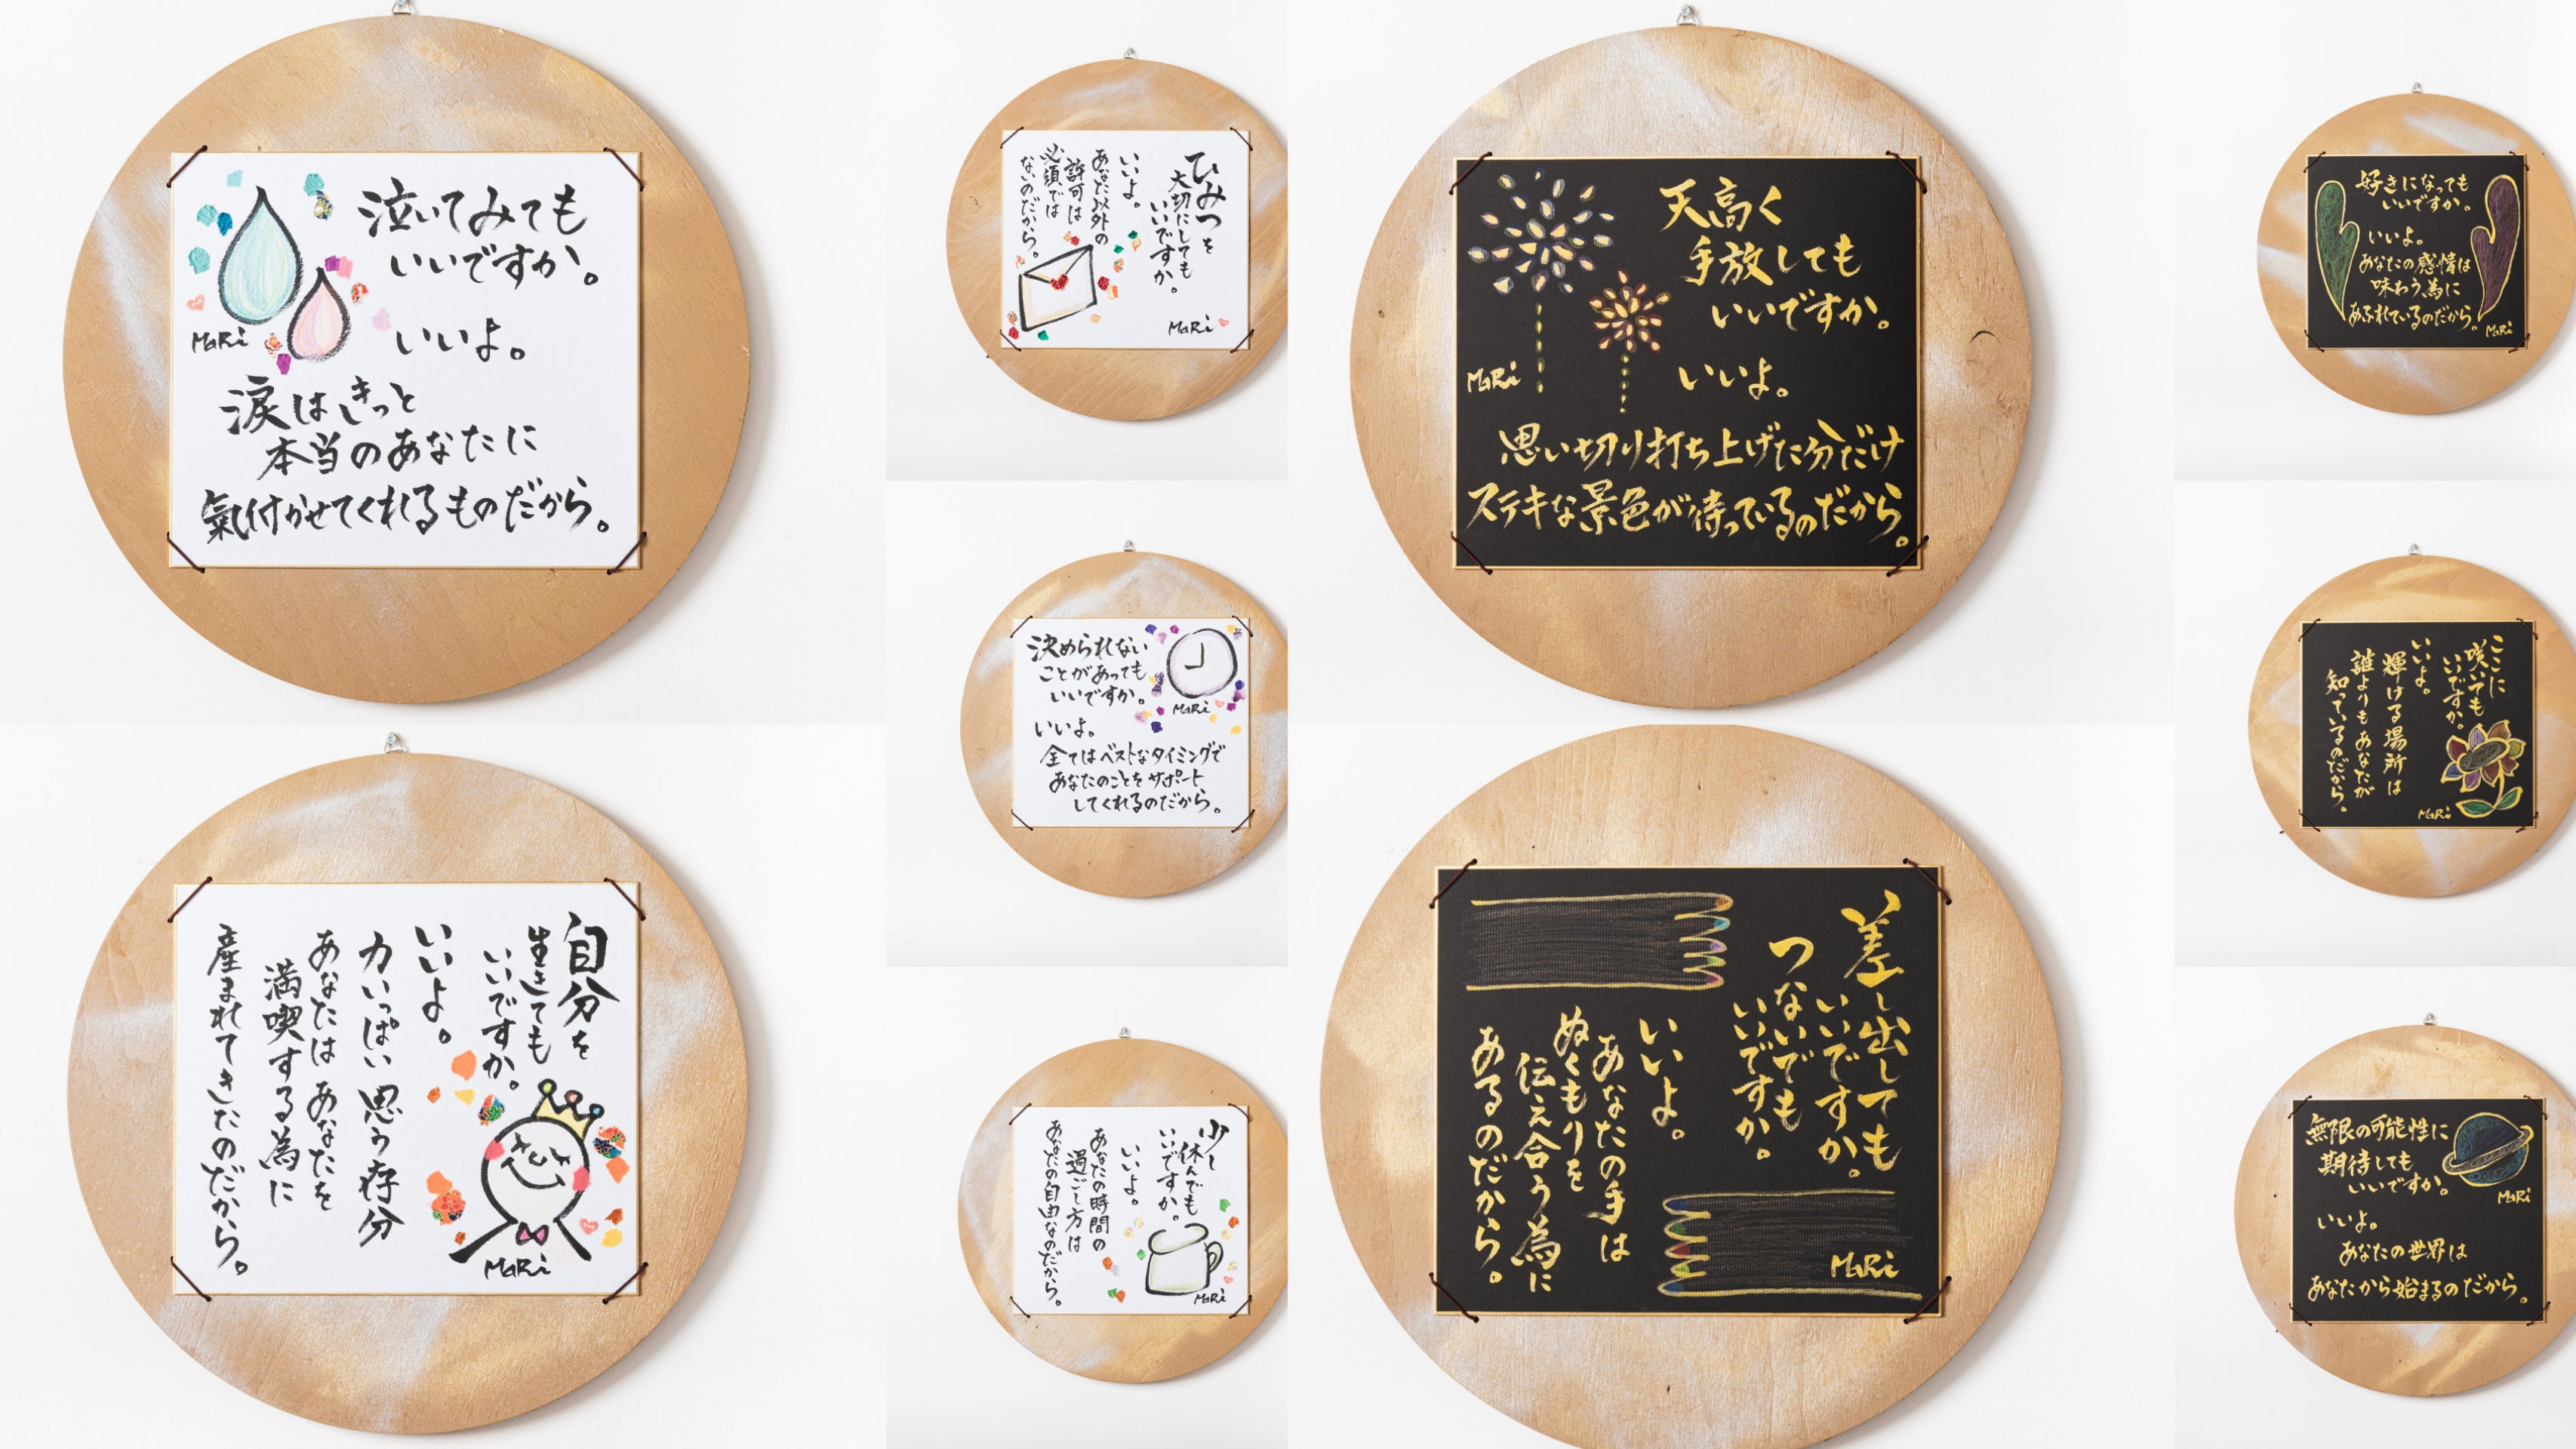 泣いてみても
いいですか。
いいよ。
涙はきっと
本当のあなたに
氣付かせてくれるものだから。
MaRi
自分を
生きても
いいですか。
いいよ。
力いっぱい 思う存分
あなたは あなたを
満喫する為に
産まれてきたのだから。
MaRi
ひみつを
大切にしても
いいですか。
いいよ。
あなた以外の
許可は
必須では
ないのだから。
MaRi
決められない
ことがあっても
いいですか。
MaRi
いいよ。
全てはベストなタイミングで
あなたのことをサポート
してくれるのだから。
少し
休んでも
いいですか。
いいよ。
あなたの時間の
過ごし方は
あなたの自由なのだから。
MaRi
天高く
手放しても
いいですか。
いいよ。
MaRi
思い切り打ち上げた分だけ
ステキな景色が待っているのだから。
差し出しても
いいですか。
つないでも
いいですか。
いいよ。
あなたの手は
ぬくもりを
伝え合う為に
あるのだから。
MaRi
好きになっても
いいですか。
いいよ。
あなたの感情は
味わう為に
あふれているのだから。
MaRi
ここに
咲いても
いいですか。
いいよ。
輝ける場所は
誰よりもあなたが
知っているのだから。
MaRi
無限の可能性に
期待しても
いいですか。
MaRi
いいよ。
あなたの世界は
あなたから始まるのだから。